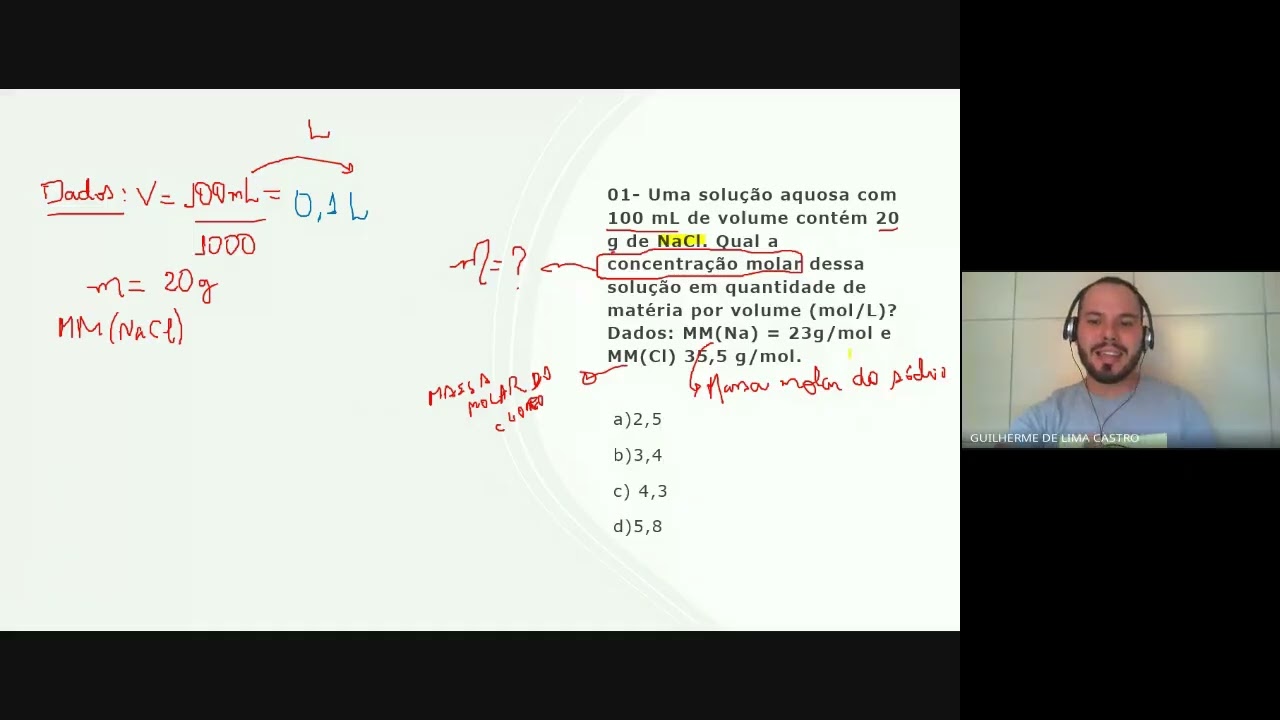 L
Dados: V = 100mL = 0,1 L
1000
m = 20g
MM(NaCl)
M = ?
01- Uma solução aquosa com
100 mL de volume contém 20
g de NaCl. Qual a
concentração molar dessa
solução em quantidade de
matéria por volume (mol/L)?
Dados: MM(Na) = 23g/mol e
MM(Cl) 35,5 g/mol.
Massa molar do sódio
MASSA
MOLAR DO
CLORO
a)2,5
b)3,4
c) 4,3
d)5,8
GUILHERME DE LIMA CASTRO